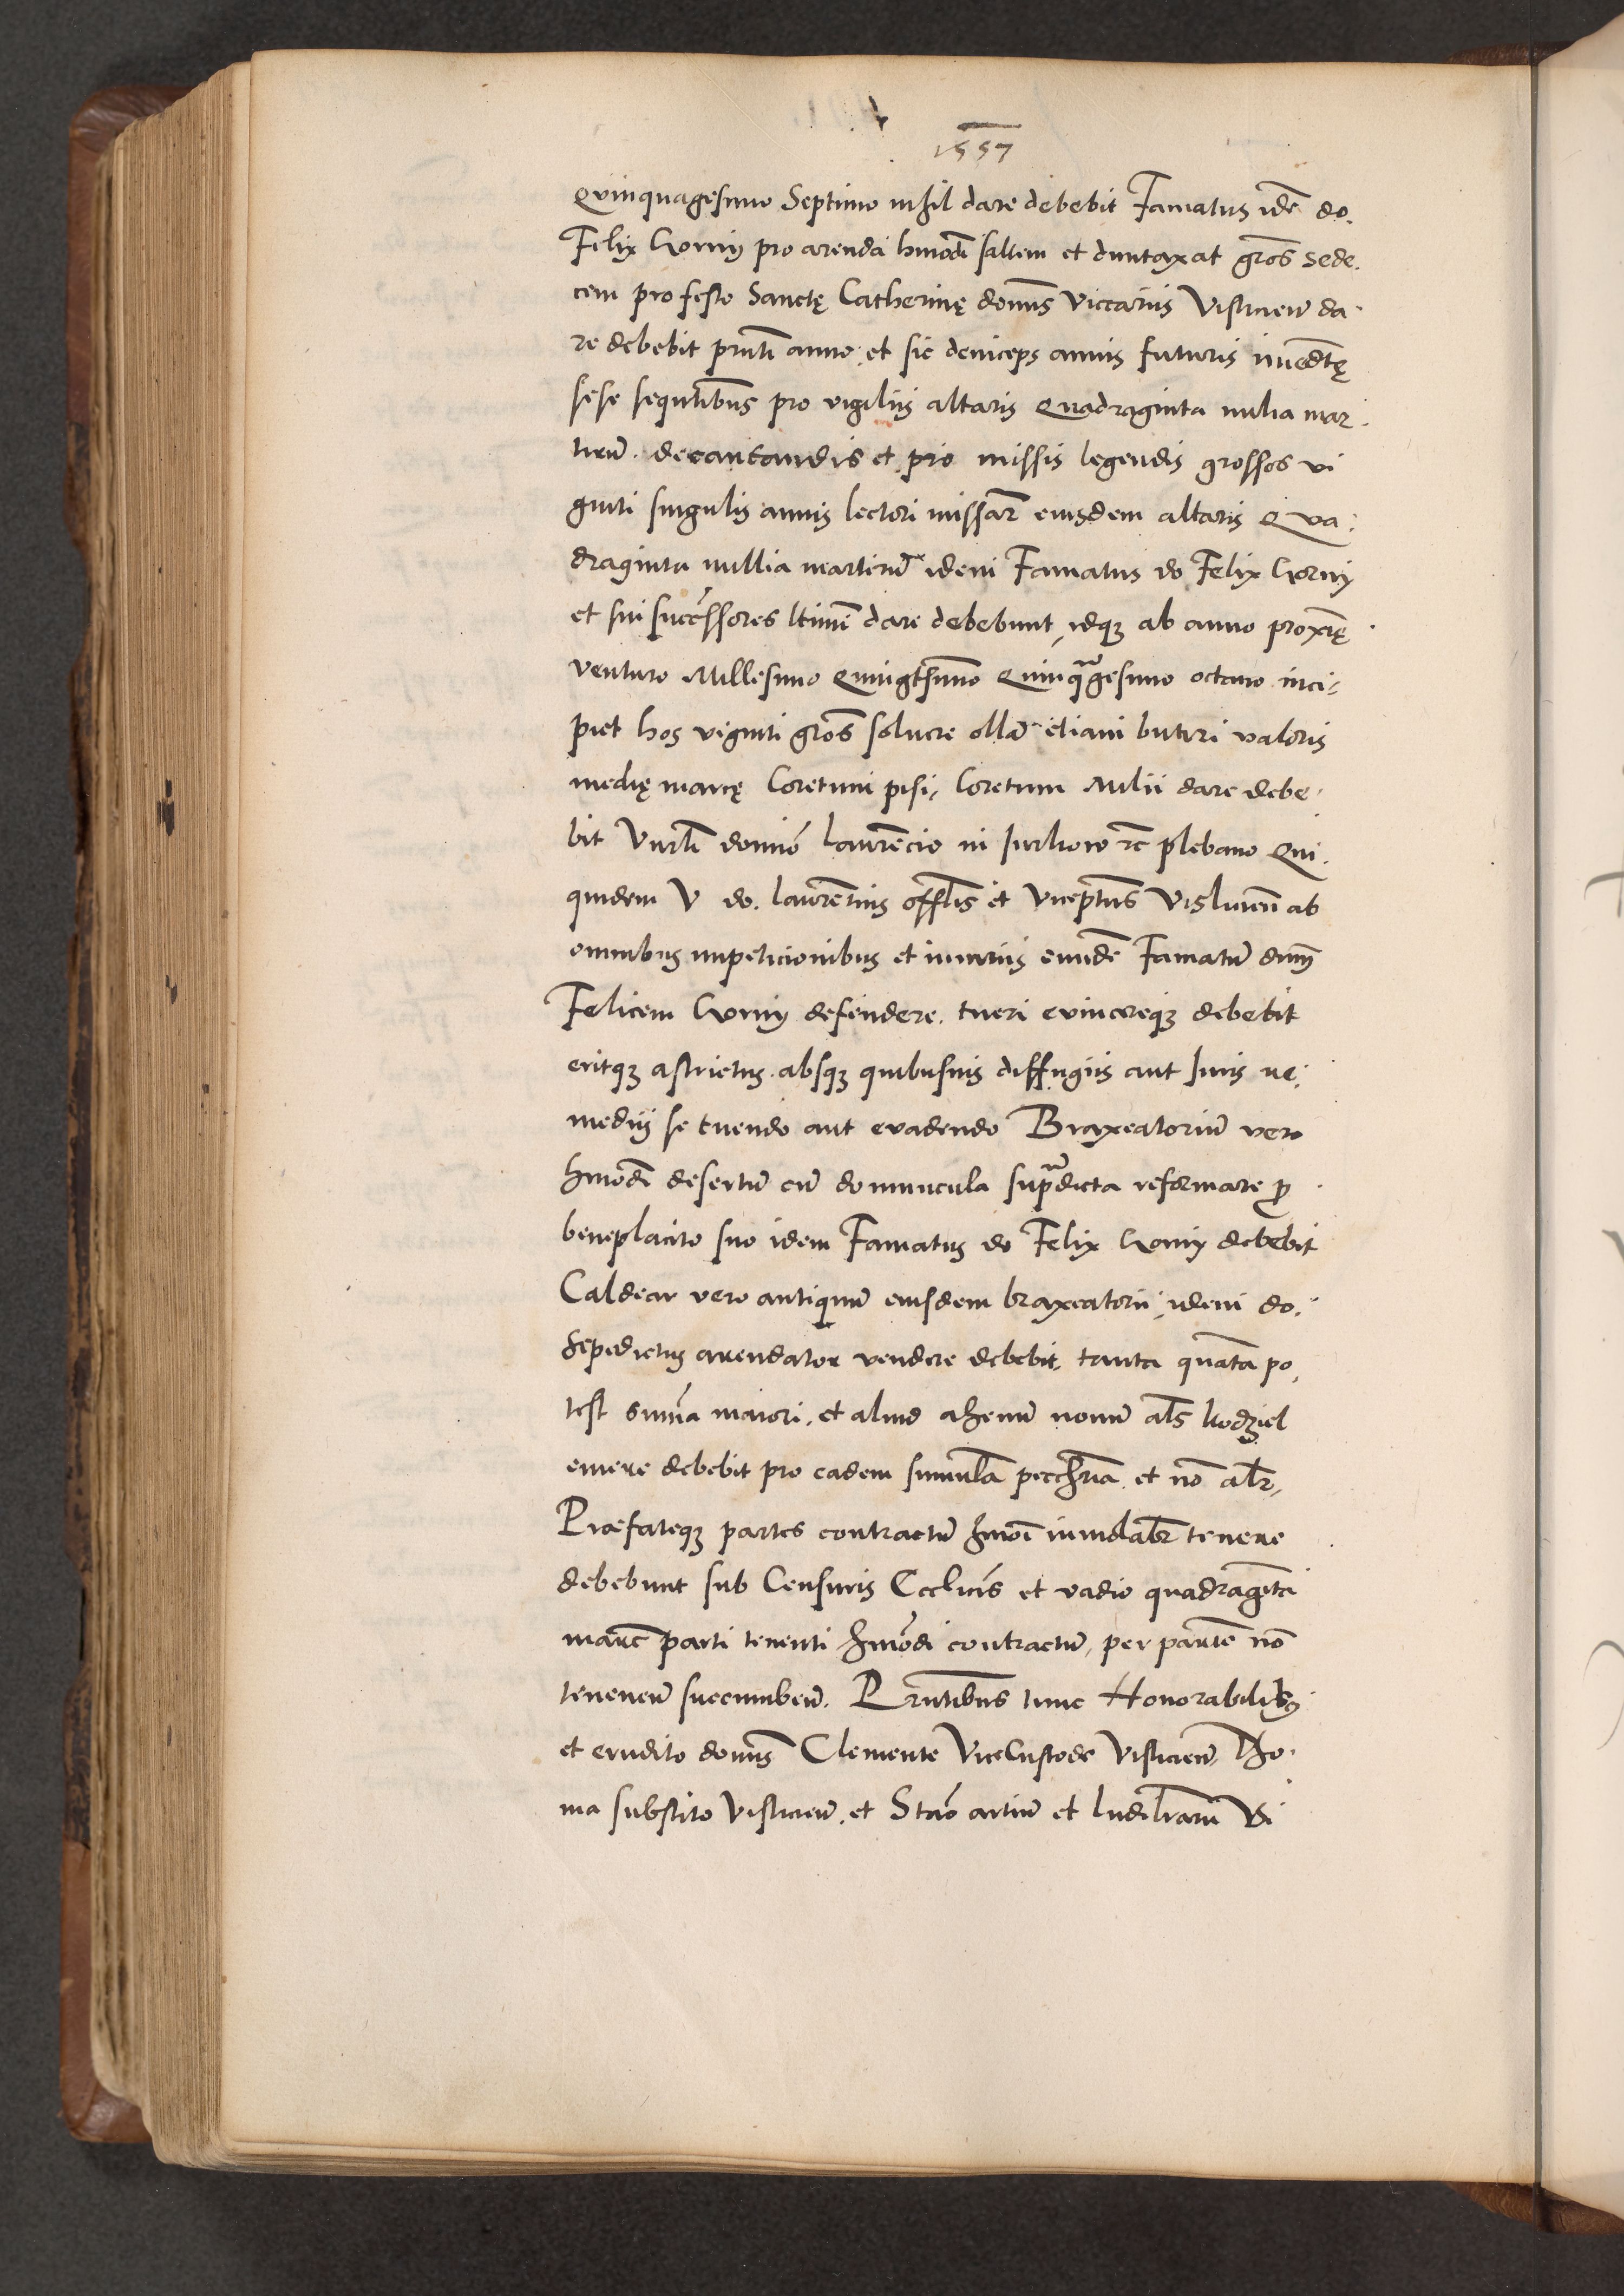 1557
Quinquagesimo Septimo nihil dare debebit Famatus idē do.
Felix Gorny pro arenda hmōdi saltem et duntaxat grōs sede.
cem pro festo Sanctę Catherinę domīs viccariis Vislicien da
re debebit pnti anno. et sic deinceps annis futuris īmediatę
sese sequtibus pro vigiliis altaris Quadraginta milia mar
tirū. decantandis et pro missis legendis grossos vi
ginti singulis annis lectori missar eiusdem altaris Qua
draginta millia martirū idem Famatus do Felix Gorny
et sui successores ltimi dare debebunt, idq3 ab anno proxīę
venturo Millesimo Quingtsimo Quinquagesimo octavo inci
piet hos viginti grōs soluere ollā etiam buturi valoris
medię marcę Coretum pisi, Coretum Milii dare debe
bit Vnrli domīo Laurēncio in plebano Qui
quidem V do. Laurentius offlis et viceptus Vislicien ab
omnibus impeticionibus et iniuriis eundē Famatū dnm
Felicem Gorny defendere. tueri evincereq3 debebit
eritq3 astrictus. absq3 quibusuis diffugiis aut Iuris re
mediis se tuendo aut evadendo Braxeatoriū vero
hmōdi desertū cū domuncula supradicta reformare p
beneplacito suo idem Famatus do Felix Gorny debebit
Caldear vero antiquū eiusdem braxeatorii, idem do.
sepedictus arendator vendere debebit. tanta quāta po
test sūma maiori. et aliud ahenū nouū als kodziel
emere debebit pro eadem sūmula pecchria. et nō alr,
Præfateq3 partes contractū hmōi inuiolabr tenere
debebunt sub Censuris Ecclicis et vadio quadraginta
marc parti tenenti hmōdi contractū, per partē nō
tenencū succumbeñ. Pruntibus tunc Honorabilibus
et erudito domīs Clemente ViceCustode Vislicien, Tho
ma substito Vislicien. et Stāo artiū et Vi